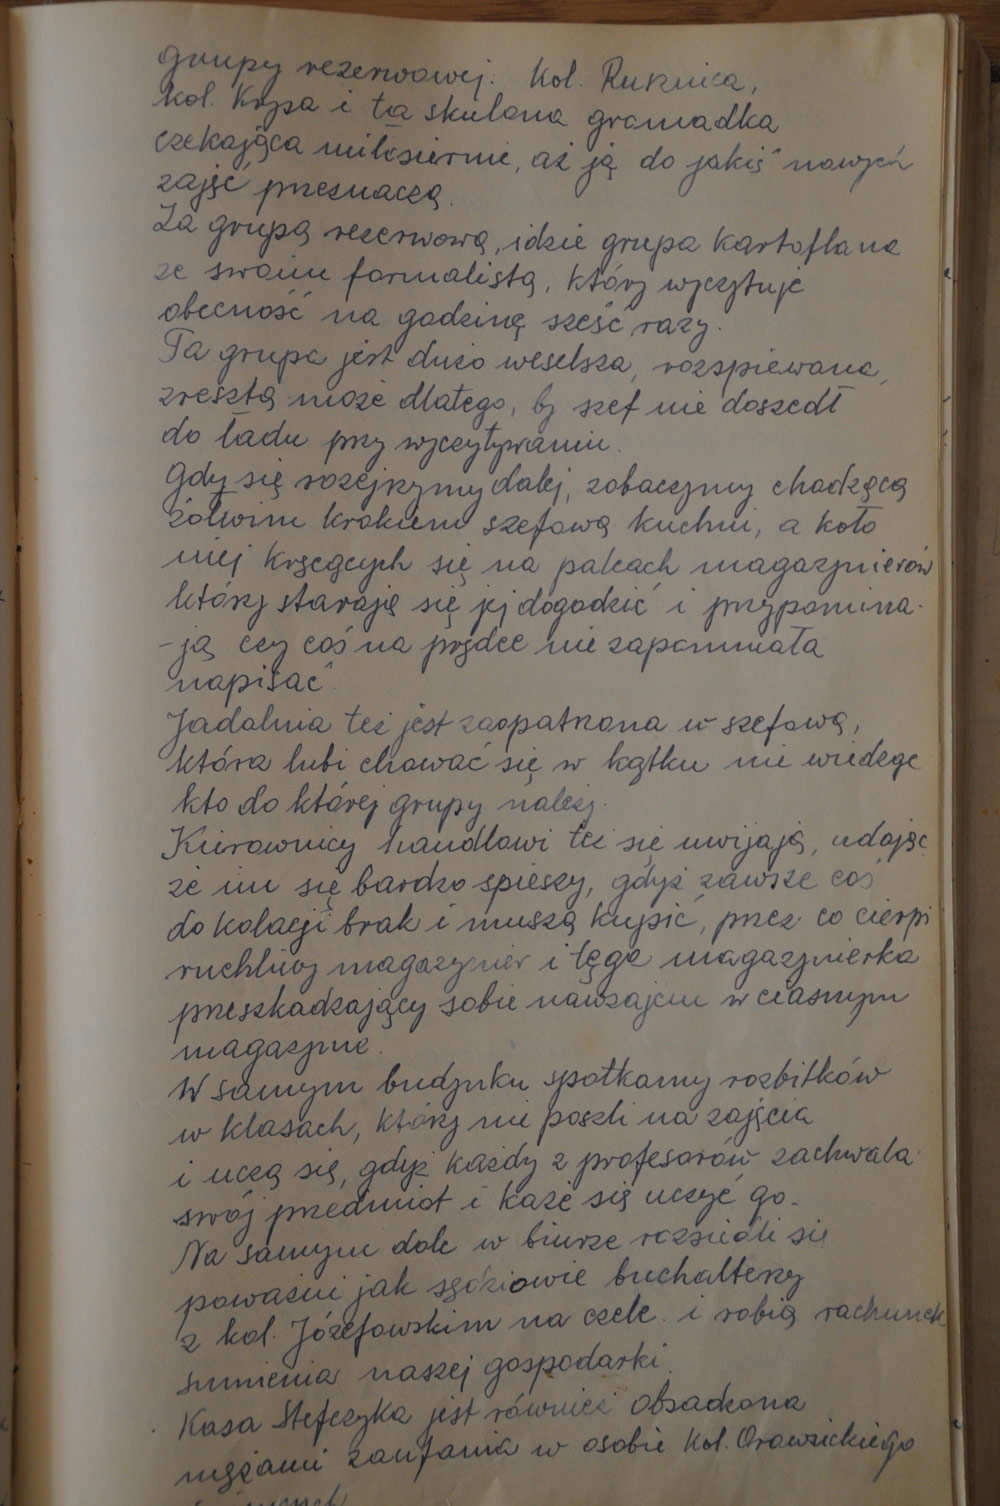 grupy rezerwowej. Kol. Rusznica,
kol. Krypa i ta skulona gromadka
czekająca miłosiernie, aż ją do jakiś nowych
zajęć przeznaczą.
Za grupą rezerwową, idzie grupa kartoflana
ze swoim formalistą, który wyczytuje
obecność na godzinę sześć razy.
Ta grupa jest dużo weselsza, rozspiewana,
zresztą może dlatego, by szef nie doszedł
do ładu przy wyczytywaniu.
Gdy się rozejrzymy dalej, zobaczymy chodzącą
żółwim krokiem szefową kuchni, a koło
niej kręcących się na palcach magazynierów
którzy starają się jej dogodzić i przypomina-
-ją czy coś na prędce nie zapomniała
napisać.
Jadalnia też jest zaopatrzona w szefową,
która lubi chować się w kątku nie wiedząc
kto do której grupy należy.
Kierownicy handlowi też się uwijają, udając
że im się bardzo spieszy, gdyż zawsze coś
do kolacji brak i muszą kupić, przez co cierpi
ruchliwy magazynier i tęga magazynierka
przeszkadzający sobie nawzajem w ciasnym
magazynie.
W samym budynku spotkamy rozbitków
w klasach, którzy nie poszli na zajęcia
i uczą się, gdyż każdy z profesorów zachwala
swój przedmiot i każe się uczyć go.
Na samym dole w biurze rozsiedli się
poważni jak sędziowie buchalterzy
z kol. Józefowskim na czele i robią rachunek
sumienia naszej gospodarki.
Kasa Stefczyka jest również obsadzona
mężami zaufania w osobie kol. Orawsickiego